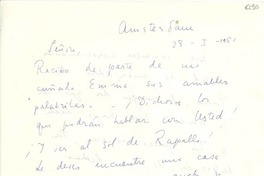 Amsterdam
28 - I - 195
Señor,
Recibo de parte de mi
cuñada Emma sus amables
palabritas. ¡Dichosos los
que podrán hablar con Usted!
¡Y ver al Sol de Rapallo!
Le deseo encuentre una casa